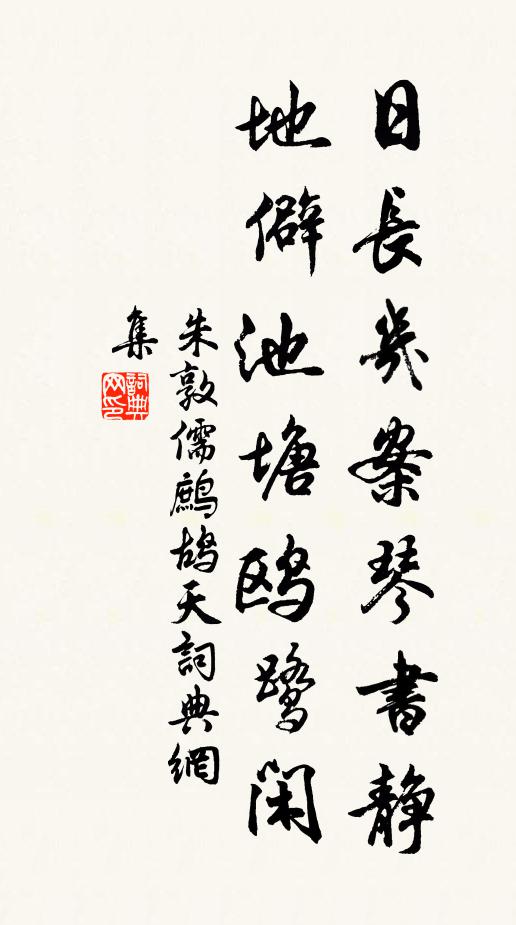 日長幾案琴書靜
地僻池塘鸥鹭閑
朱敦儒鷓鴣天詞典網
集
詞典
网印